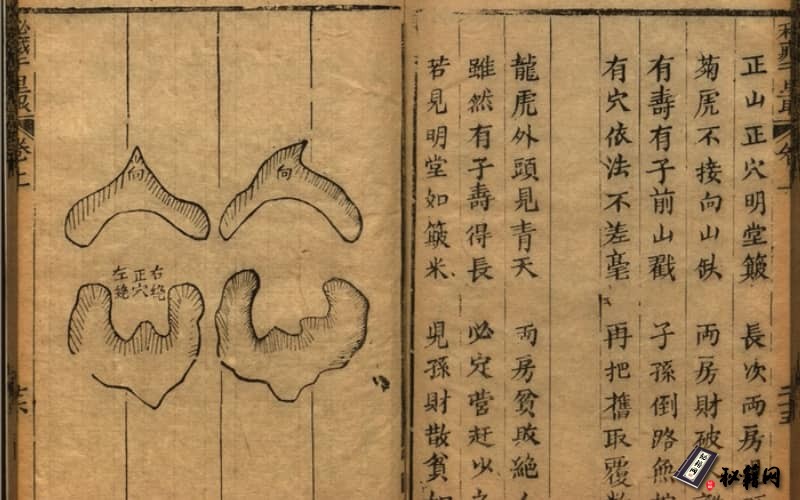 正山正穴明堂簸 長次两房
菊虎不接向山缺 两房財破
有壽有子前山戳 子孫倒路
有穴依法不差毫 再把攜取覆
龍虎外頭見青天 两房貧敗絕
雖然有子壽得長 必定營赶少
若見明堂如簸米 孫財散貧如
向
向
右絕
正穴
左絕
卷上
秘籍网